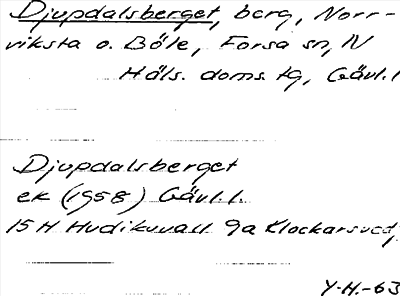 Djupdalsberget, berg, Norr-
viksta o. Böle, Forsa sn, N
Häls. doms. tg, Gävl. l
Djupdalsberget
ek (1958) Gävl. l.
15 H Hudiksvall 9a Klockarsved
Y.H.-63